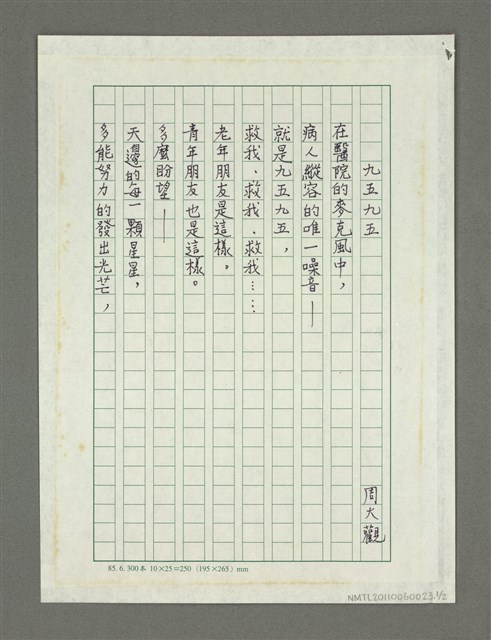 九五九五
周大觀
在醫院的麥克風中，
病人縱容的唯一噪音——
就是九五九五，
救我、救我、救我……
老年朋友是這樣。
青年朋友也是這樣。
多麼盼望——
天邊的每一顆星星，
多能努力的發出光芒，
85. 6. 300本 10×25＝250（195×265）mm
NMTL20110050023.1/2